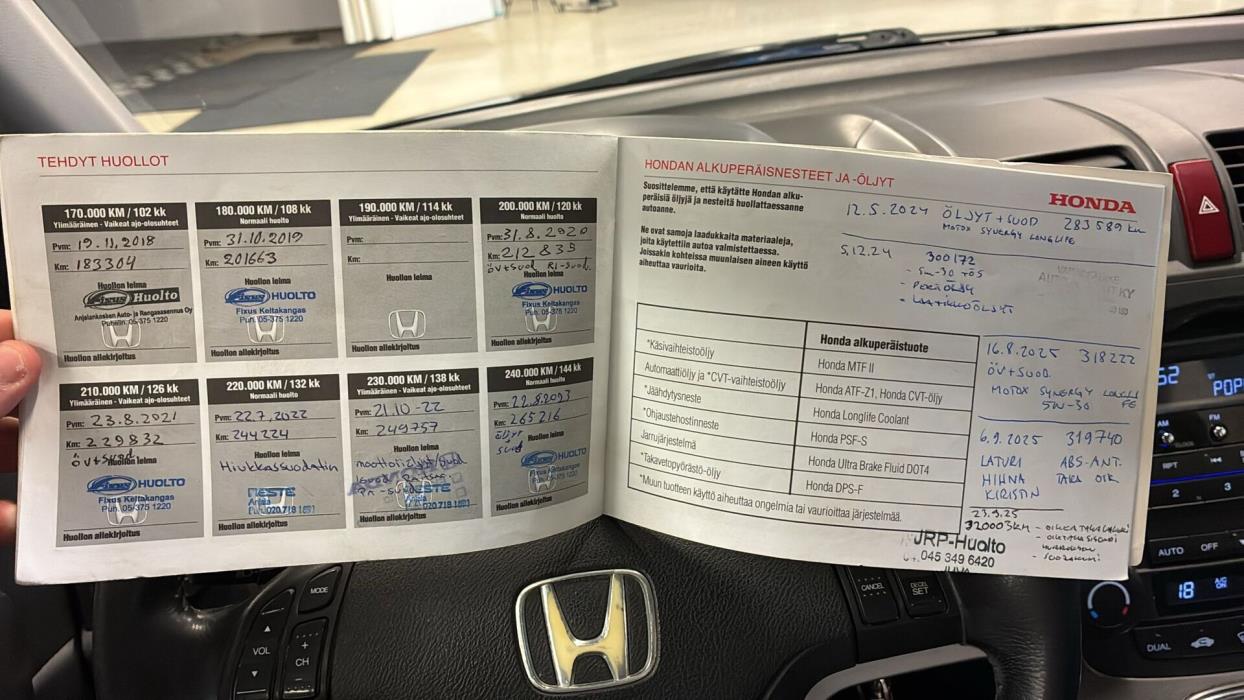 TEHDYT HUOLLOT
170.000 KM / 102 kk
Ylimääräinen - Vaikeat ajo-olosuhteet
Pvm: 19.11.2018
Km: 183304
Huollon leima
Fixus Huolto
Anjalankosken Auto- ja Rengasasennus Oy
Puhelin. 05-375 1220
Huollon allekirjoitus
180.000 KM / 108 kk
Normaali huolto
Pvm: 31.10.2019
Km: 201663
Huollon leima
Fixus HUOLTO
Fixus Keltakangas
Puh. 05-375 1220
Huollon allekirjoitus
190.000 KM / 114 kk
Ylimääräinen - Vaikeat ajo-olosuhteet
Pvm:
Km:
Huollon leima
Huollon allekirjoitus
200.000 KM / 120 kk
Normaali huolto
Pvm: 31.8.2020
Km: 212835
ÖV+suod RI-suod.
Huollon leima
Fixus HUOLTO
Fixus Keltakangas
Puh. 05-375 1220
Huollon allekirjoitus
210.000 KM / 126 kk
Ylimääräinen - Vaikeat ajo-olosuhteet
Pvm: 23.8.2021
Km: 229832
ÖV+suod
Huollon leima
Fixus HUOLTO
Fixus Keltakangas
Puh. 05-375 1220
Huollon allekirjoitus
220.000 KM / 132 kk
Normaali huolto
Pvm: 22.7.2022
Km: 244224
Huollon leima
Hiukkassuodatin
NESTE
Anjala
Puh. 020 718 1591
Huollon allekirjoitus
230.000 KM / 138 kk
Ylimääräinen - Vaikeat ajo-olosuhteet
Pvm: 21.10-22
Km: 249757
Huollon leima
NESTE
Anjala
020 718 1591
Huollon allekirjoitus
240.000 KM / 144 kk
Normaali huolto
Pvm: 22.8.2023
Km: 265216
öljyt + suod
Huollon leima
Fixus HUOLTO
Fixus Keltakangas
Puh. 05-375 1220
Huollon allekirjoitus
HONDAN ALKUPERÄISNESTEET JA -ÖLJYT
HONDA
Suosittelemme, että käytätte Hondan alku-
peräisiä öljyjä ja nesteitä huollattaessanne
autoanne.
Ne ovat samoja laadukkaita materiaaleja,
joita käytettiin autoa valmistettaessa.
Joissakin kohteissa muunlaisen aineen käyttö
aiheuttaa vaurioita.
12.5.2024 ÖLJYT+SUOD 283589 km
MOTOX SYNERGY LONGLIFE
5.12.24 300172
- 5w-30 
- PERÄÖLJY
- LAATIKKOÖLJYT
Honda alkuperäistuote
*Käsivaihteistoöljy
Honda MTF II
Automaattiöljy ja *CVT-vaihteistoöljy
Honda ATF-Z1, Honda CVT-öljy
*Jäähdytysneste
Honda Longlife Coolant
*Ohjaustehostinneste
Honda PSF-S
Jarrujärjestelmä
Honda Ultra Brake Fluid DOT4
*Takavetopyörästö-öljy
Honda DPS-F
*Muun tuotteen käyttö aiheuttaa ongelmia tai vaurioittaa järjestelmää.
16.8.2025 318222
ÖV+SUOD.
MOTOX SYNERGY
5W-30
6.9.2025 319740
LATURI ABS-ANT.
HIHNA TAKA OIK.
KIRISTIN
23.9.25
320003KM
JRP-Huolto
045 349 6420
MODE
VOL
+
CH
-
CANCEL
DECEL
SET
POP
AM
FM
RPT
2
3
AUTO
OFF
18
A/C
ON
DUAL